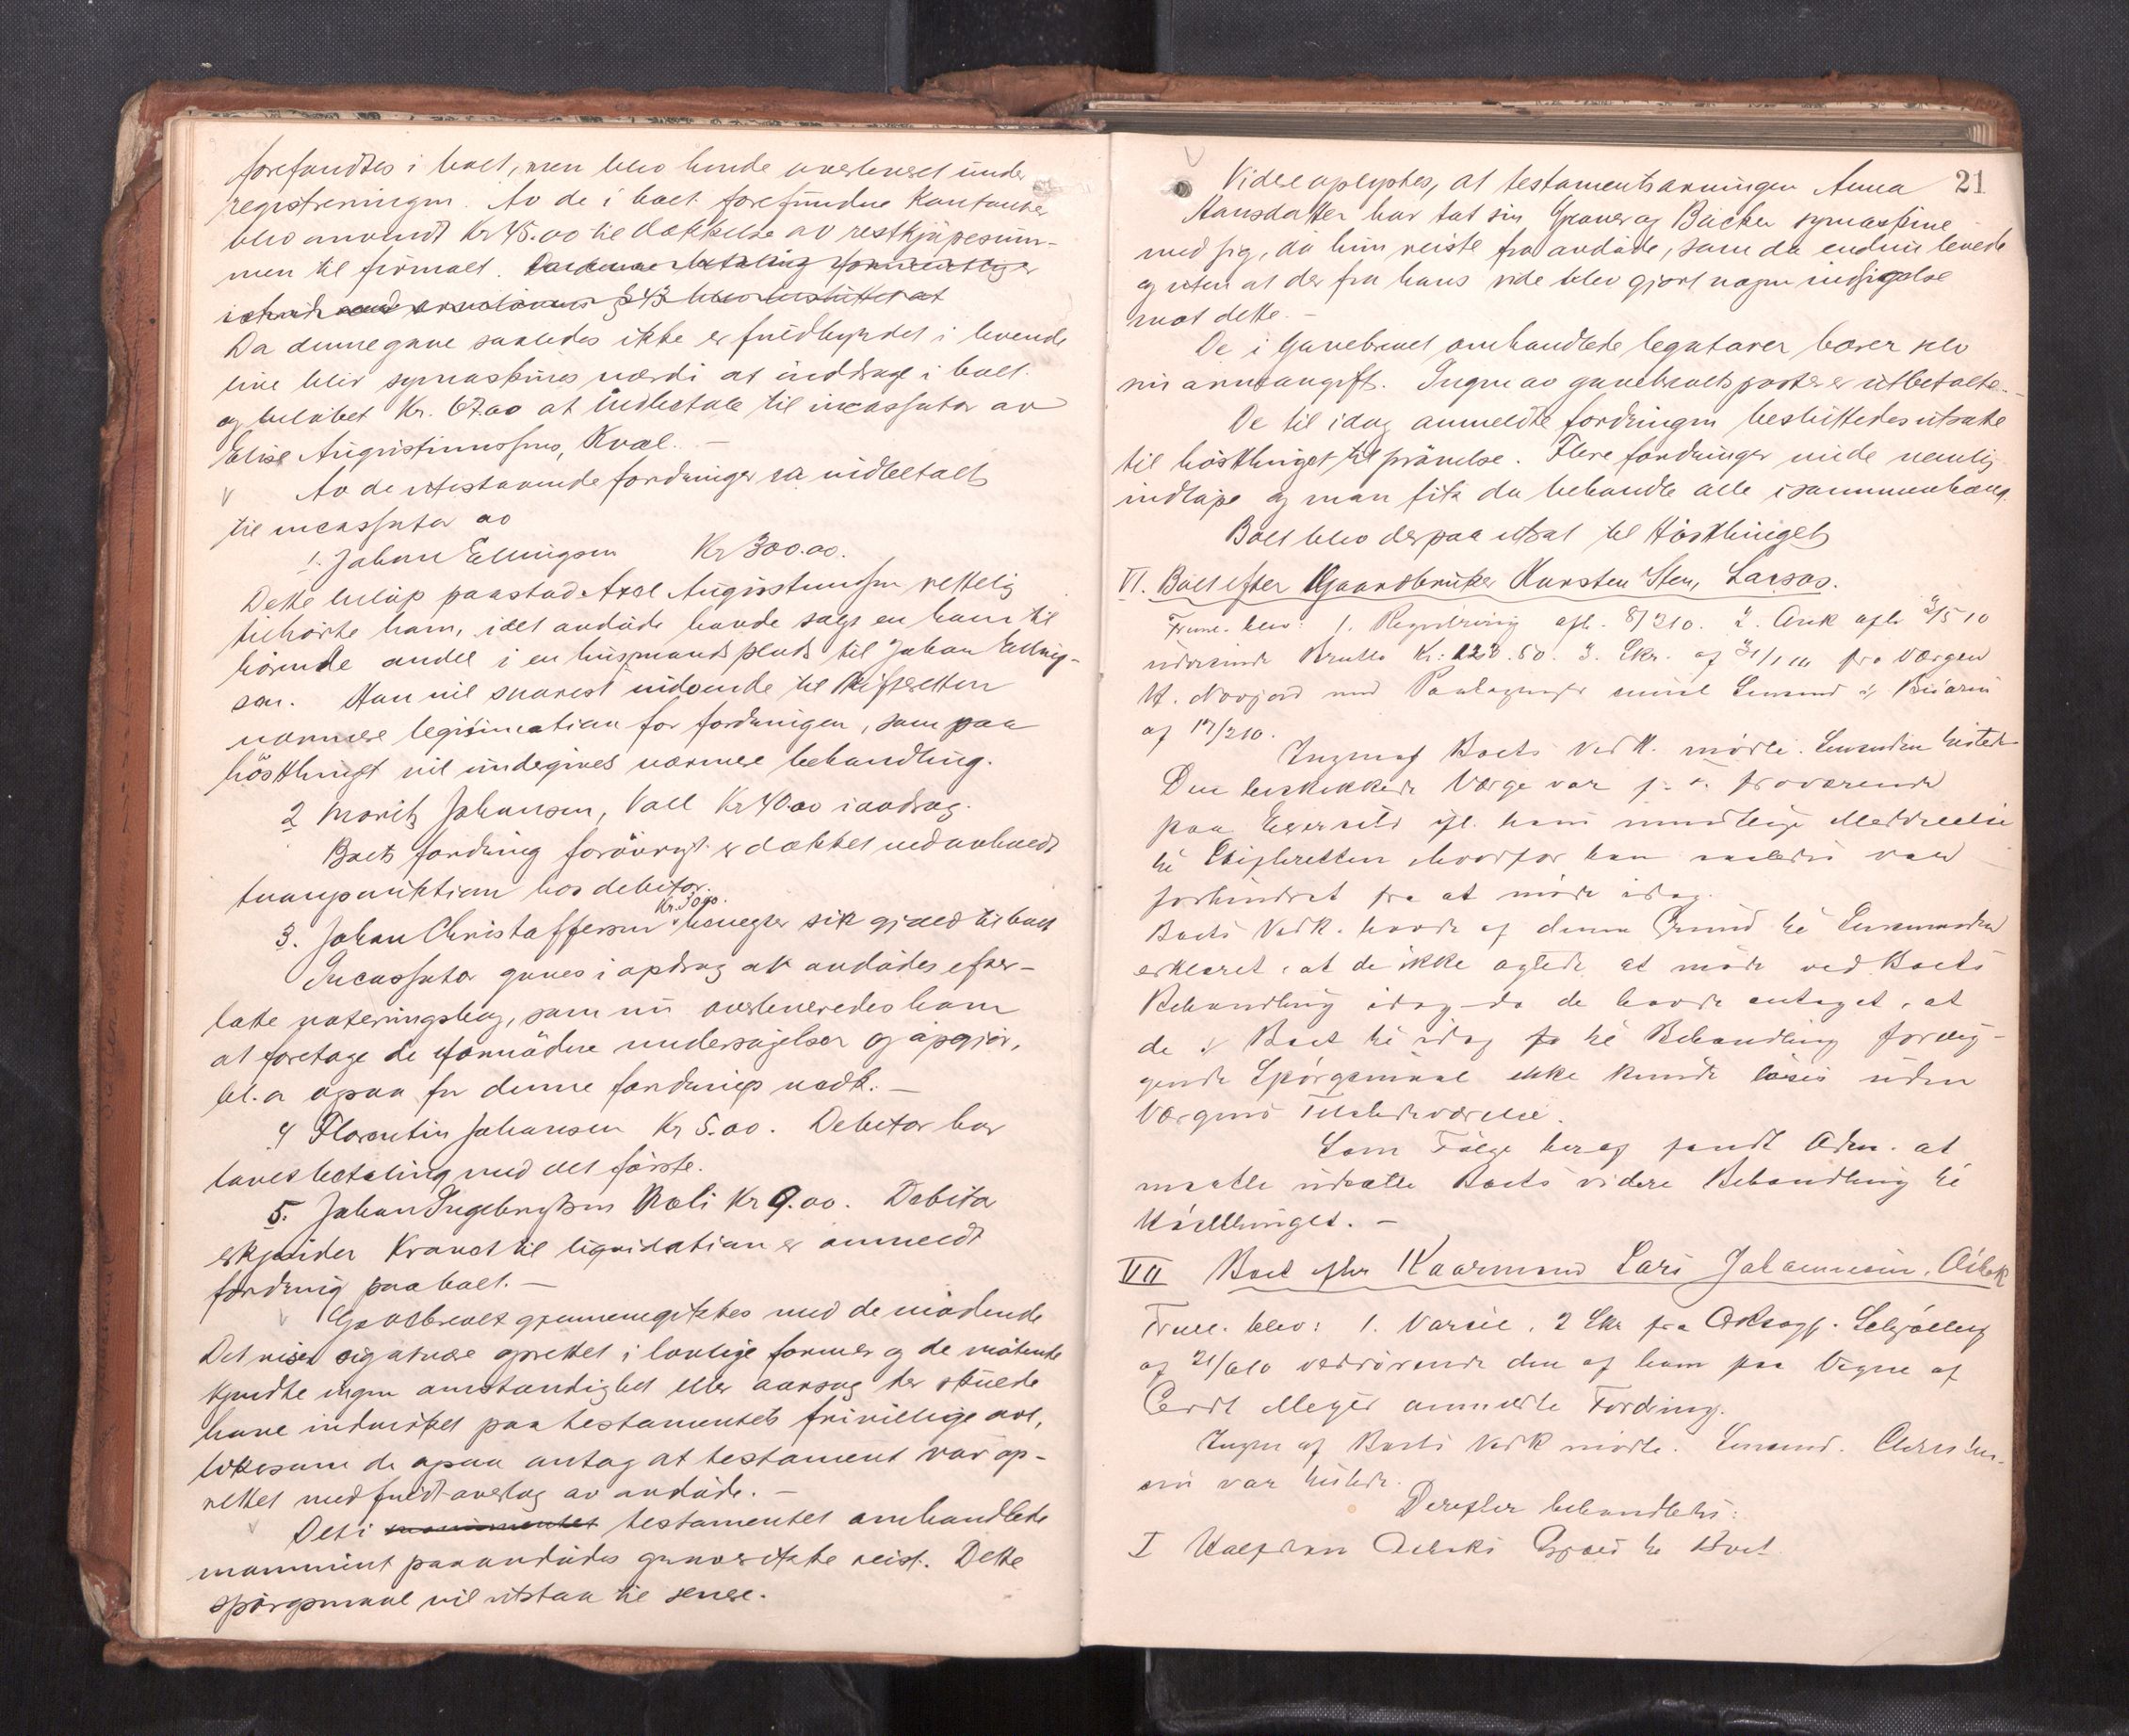 forefandtes i boet, men blev hende overleveret under
registreringen. Av de i boet forefundne Kontanter
blev anvendt Kr 45.00 til dækkelse av restkjøpesum-
men til firmaet.
Da denne gave saaledes ikke er fuldbyrdet i levende
live blir symaskines værdi at inddrage i boet
og beløbet Kr. 67.00 at indbetale til incassator av
Elise Augustinussens, Kval. –
Av de utestaaende fordringer er indbetalt
til incassator av
1. Johan Ellingsen Kr 300.00.
Dette beløp paastod Axel Augustinussen rettelig
tilhørte ham, idet avdøde havde solgt en ham til
hørende andel i en husmandsplads til Johan Elling-
sen. Han vil snarest indsende til skifteretten
nærmere legitimation for fordringen, som paa
høstthinget vil undergives nærmere behandling.
2 Moritz Johansen, Vall Kr 40.00 i avdrag.
Boets fordring forøvrigt er dækket ved avholdt
tvangsauktion hos debitor.
Kr. 30.00.
3. Johan Christoffersen benegter sik gjæld til boet
Incassator gaves i opdrag av avdødes efter-
latte noteringsbog, som nu overleveredes ham
at foretage de fornødne undersøgelser og opgjør,
bl.a ogsaa for denne fordrings vedk. –
4 Florentin Johansen Kr 5.00. Debitor har
lovet betaling med det første.
5. Johan Ingebrigtsen Kr 9.00. Debitor
erkjender Kravet til liquidation er anmeldt
fordring paa boet. –
Gavebrevet gjennemgikkes med de mødende
Det viser sig at være oprettet i lovlige former og de møtende
kjendte ingen omstændighet eller aarsag der skulde
have indvirket paa testamentets frivillige art,
likesom de ogsaa antog at testament var op-
rettet med fuldt overlæg av avdøde. –
Det i testamentet omhandlede
monument paa avdødes grav er ikke reist. Dette
spørgsmaal vil utstaa til senere.
21
Videre oplystes, at testamentsarvingen Anna
Hansdatter har tat sin Grover og Backer symaskine
med sig, da hun reiste fra avdøde, som da endnu levede
og uten at der fra hans side blev gjort nogen indsigelse
mot dette. –
De i Gavebrevet omhandlede legatarer bærer selv
sin arveavgift. Ingen av gavebrevets poster er utbetalte. –
De til idag anmeldte fordringer besluttedes utsatte
til høstthinget til prøvelse. Flere fordringer vilde nemlig
indløpe og man fik da behandle alle i sammenhæng.
Boet blev derpaa utsat til Høstthinget
VI. Boet efter Gaardbruker Karsten Sten,
Freml. blev: 1. Registrering afh. 8/2 10. 2. Auk afh. 2/5 10
udvisende Brutto Kr: 128.50. 3. Skr. af fra Værgen
af 17/2 10.
Ingen af Boets Vedk. mødte. Lensmanden tilstede
Den beskikkede Værge var f. t. fraværende
paa ifl. hans mundtlige Meddelelse
til Skifteretten hvorfor han saaledes var
forhindret fra at møde idag.
Boets Vedk. havde af denne Grund til Lensmanden
erklæret, at de ikke agtede at møde ved Boets
Behandling idag da de havde antaget, at
de i Boet til idag til Behandling forelig-
gende Spørgsmaal ikke kunde løses uden
Værgens Tilstedeværelse.
Som Følge heraf fandt Adm. at
maatte udsætte Boets videre Behandling til
Høstthinget. –
VII Boet efter Kaarmand Lars Johannesen,
Freml. blev: 1. Varsel. 2 Skr fra Oksagf. Schjølberg
af 21/6 10 vedrørende den af ham paa Vegne af
Gerdt Meyer anmeldte Fordring.
Ingen af Boets Vedk mødte. Lensmd.
sen var tilstede.
Derefter behandledes:
I